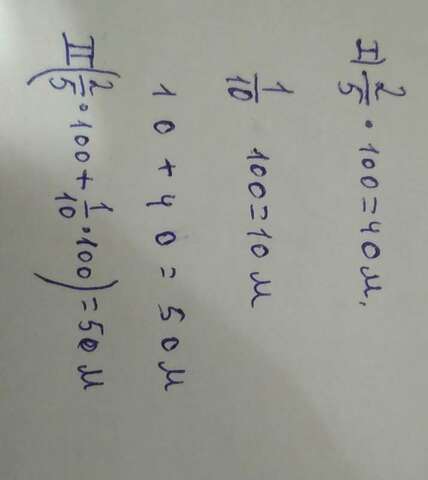 I) 2/5 · 100 = 40 м.
1/10 100 = 10 м
10 + 40 = 50 м
II (2/5 · 100 + 1/10 · 100) = 50 м